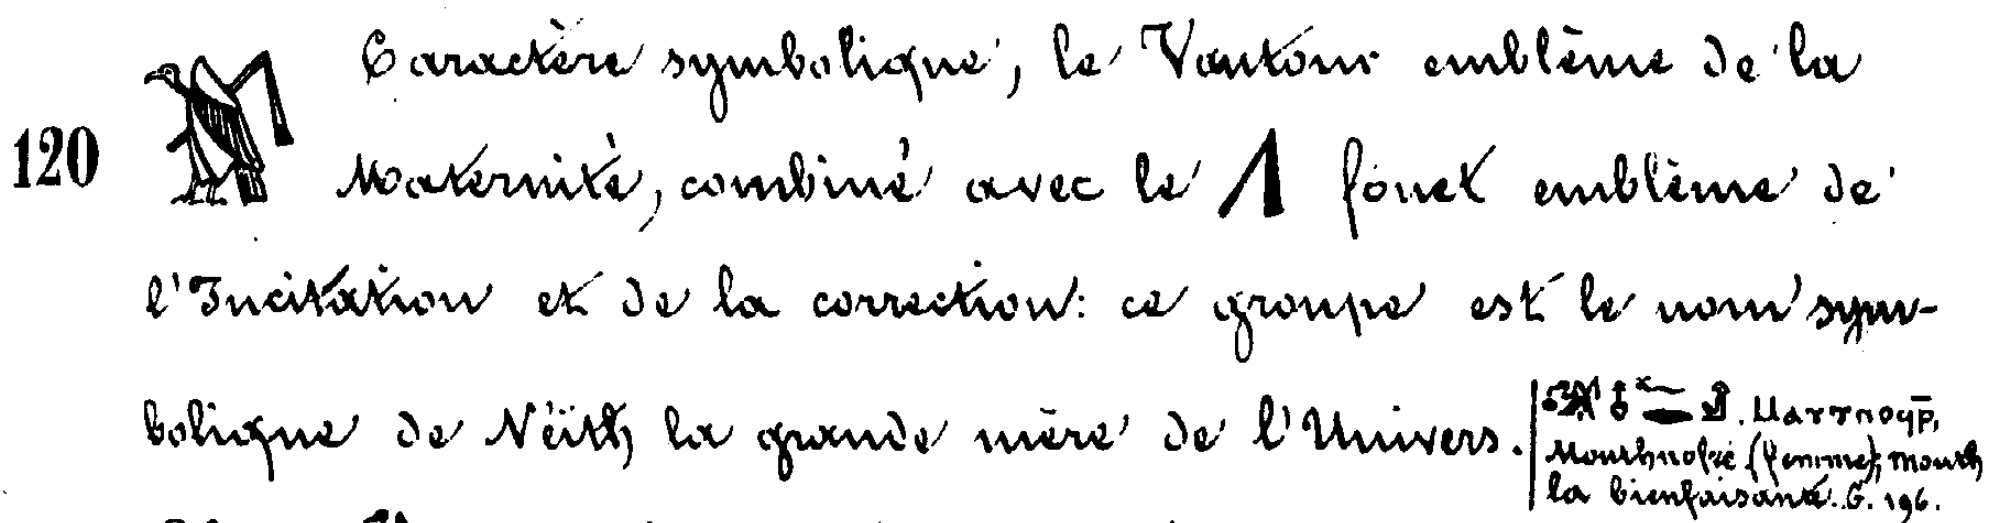 Caractère symbolique, le Vautour emblème de la
120
Maternité, combiné avec le fouet emblème de
l'Incitation et de la correction: ce groupe est le nom sym-
bolique de Nëith la grande mère de l'Univers.
Mouthnofré (femme), mouth
la bienfaisante. G. 196.